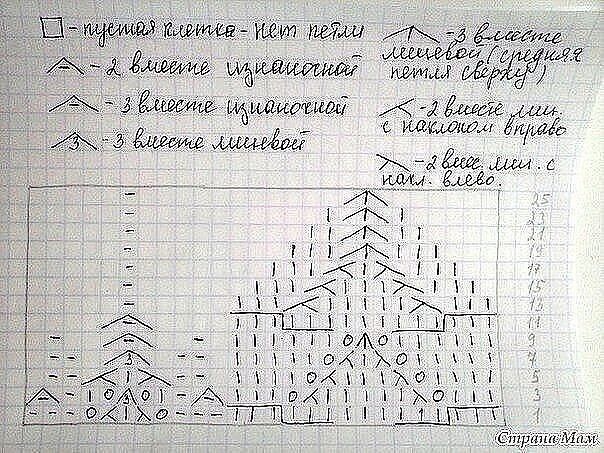 - пустая клетка - нет петли
- 2 вместе изнаночной
- 3 вместе изнаночной
- 3 вместе лицевой
- 3 вместе
лицевой (средняя
петля сверху)
- 2 вместе лиц.
с наклоном вправо
- 2 вмес. лиц. с
накл. влево.
25
23
21
19
17
15
13
11
9
7
5
3
1
Страна Мам